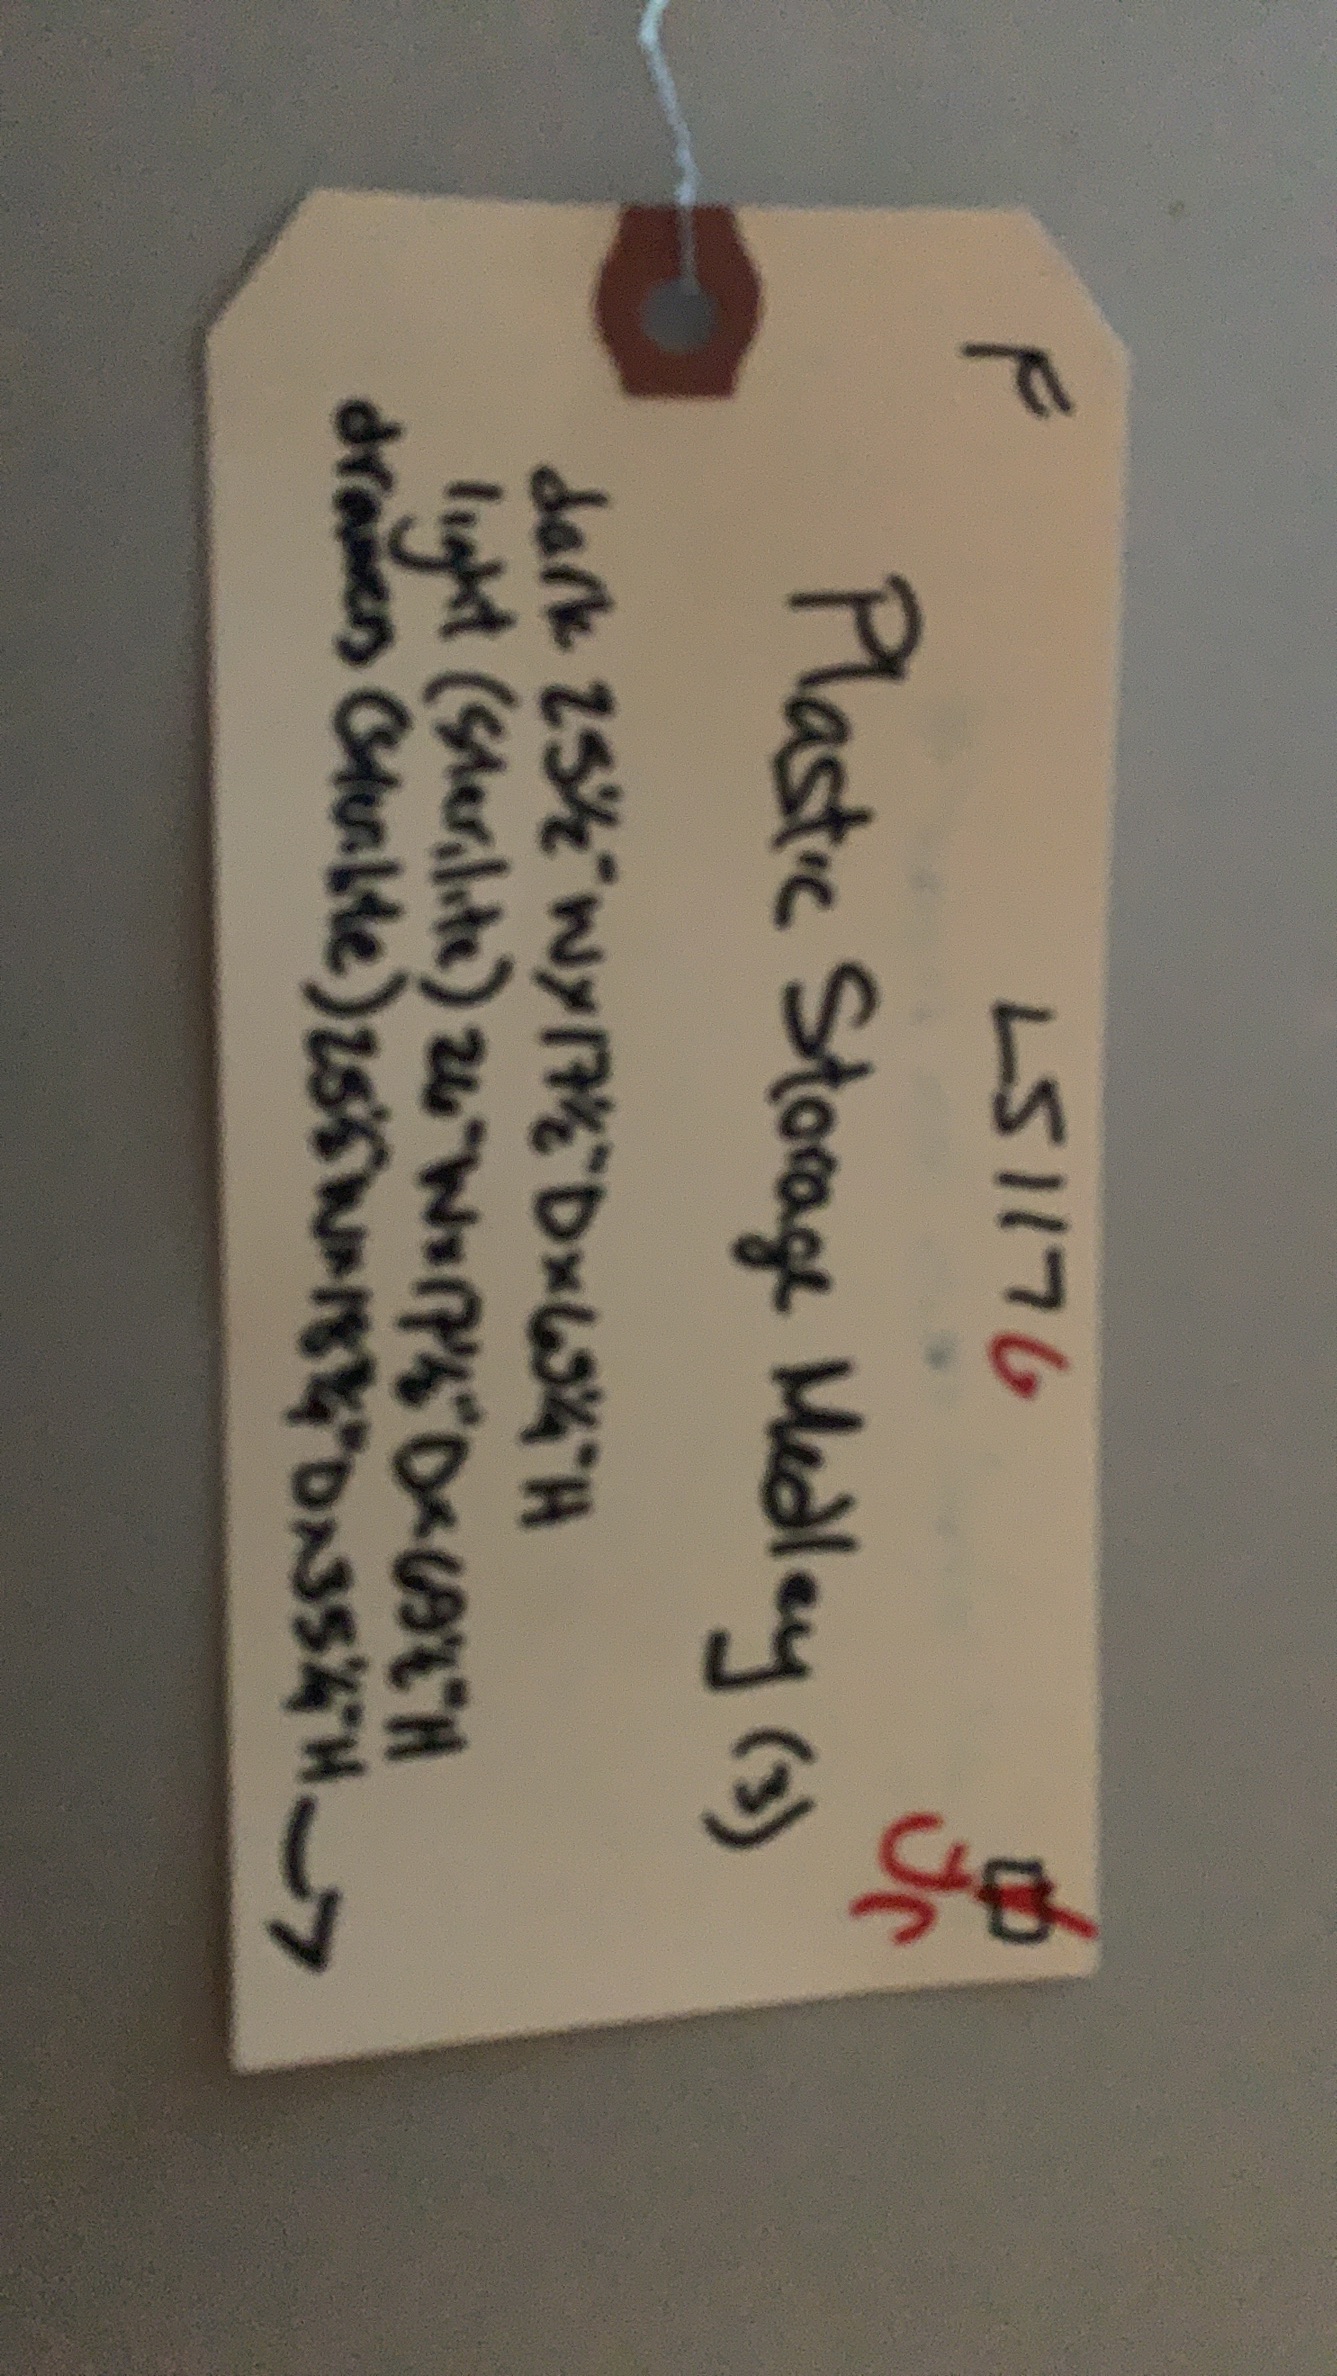 F LS1176
Jr
Plastic Storage Medley (3)
dark 25½" W x 17½" D x 65¼" H
light (Sterilite) 26" W x 17½" D x 69½" H
drawers (Sterilite) 25½" W x 18¾" D x 35¼" H